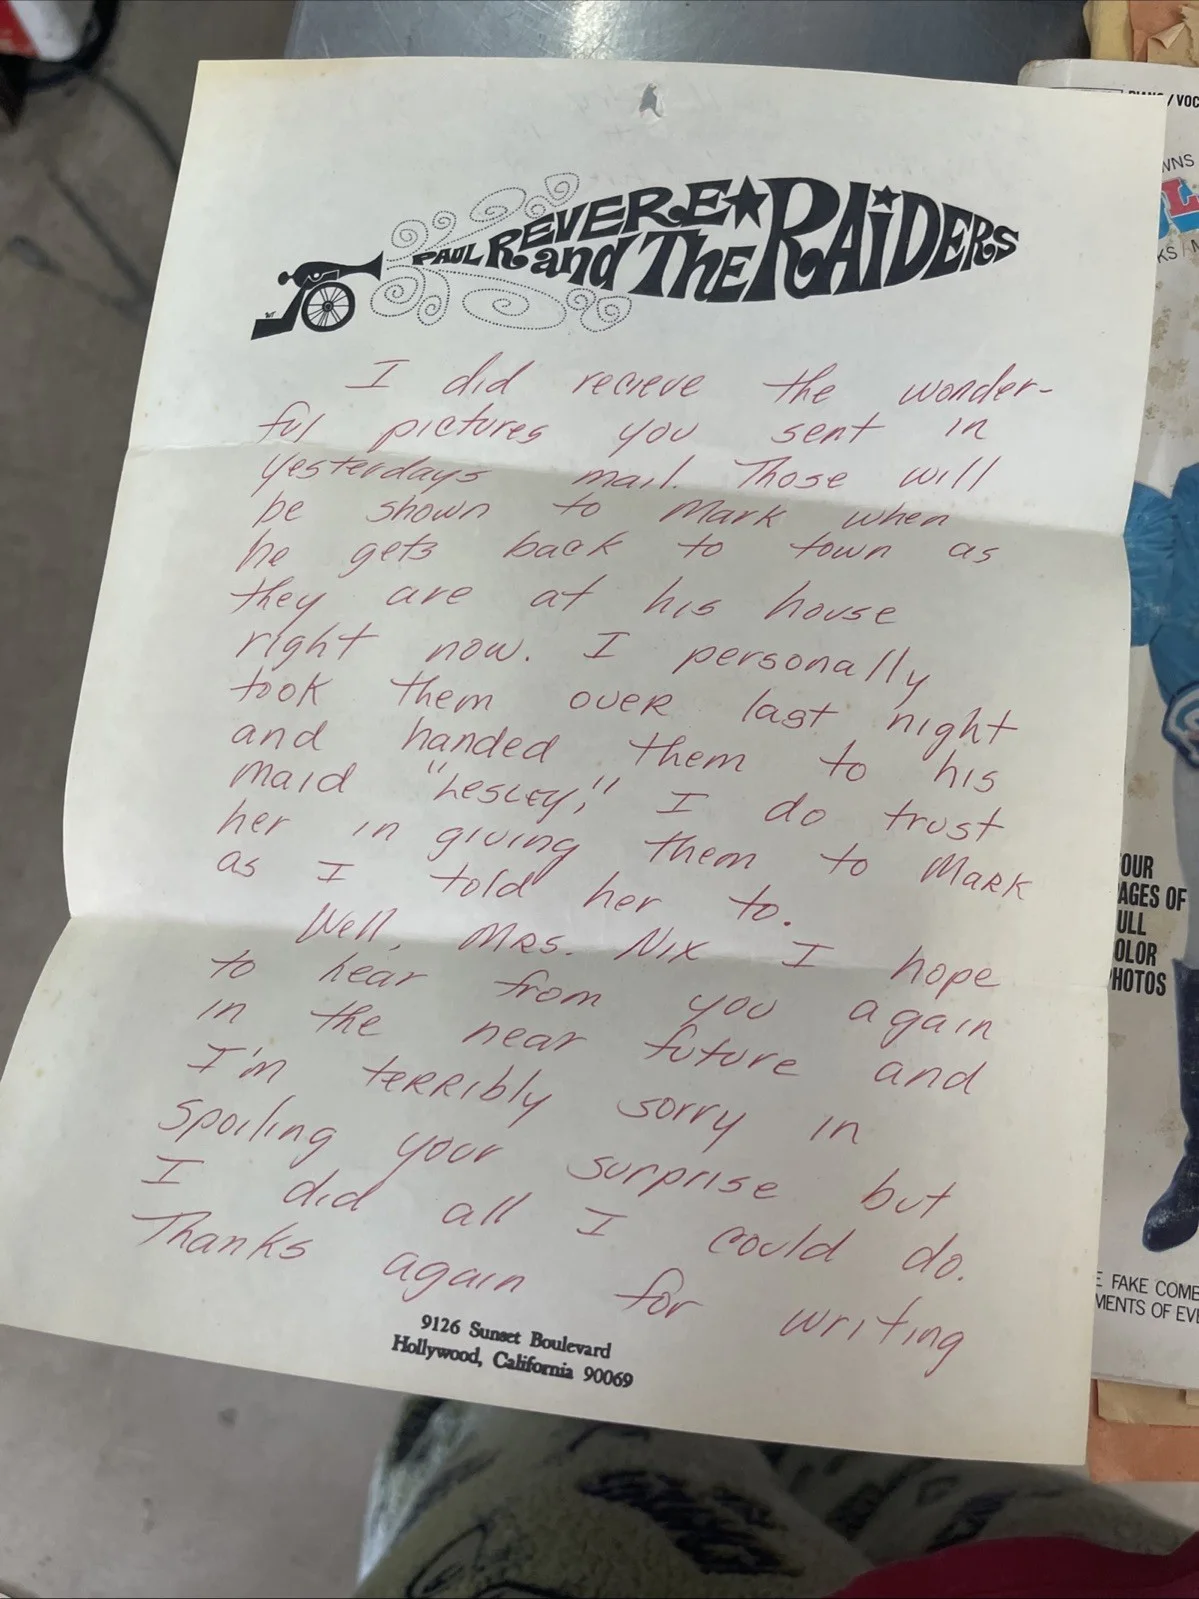 PAUL REVERE★
and THE RAiDERS
I did recieve the wonder-
ful pictures you sent in
yesterdays mail. Those will
be shown to Mark when
he gets back to town as
they are at his house
right now. I personally
took them over last night
and handed them to his
maid "Lesley," I do trust
her in giving them to Mark
as I told her to.
Well, Mrs. Nix I hope
to hear from you again
in the near future and
I'm terribly sorry in
spoiling your surprise but
I did all I could do.
Thanks again for writing
9126 Sunset Boulevard
Hollywood, California 90069
/VOC
OUR
AGES OF
ULL
OLOR
HOTOS
FAKE COMB
MENTS OF EVE